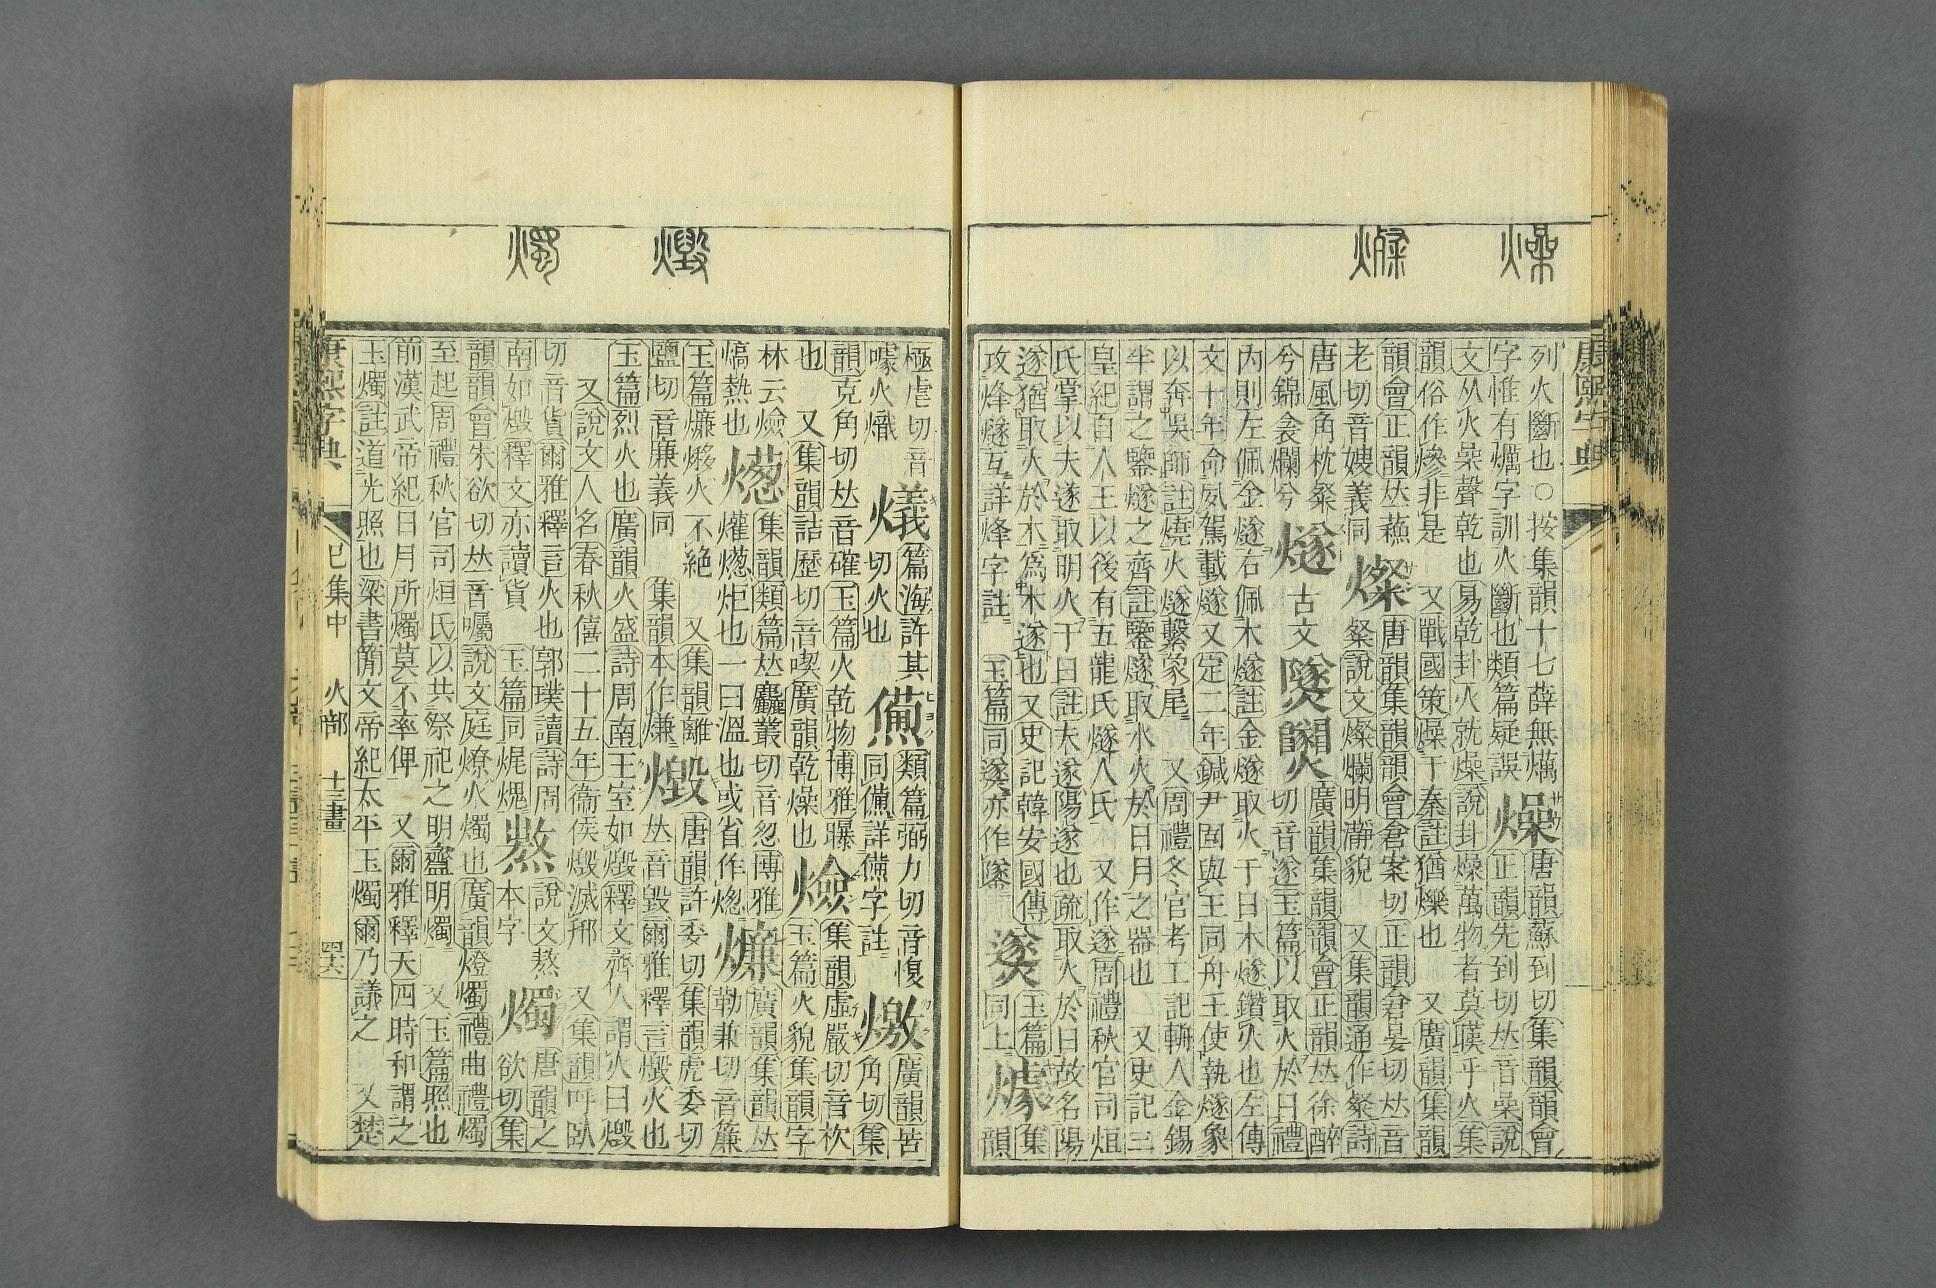 燥
燦
列火斷也○按集韻十七薛無爄燥唐韻蘇到切集韻韻會
字惟有爄字訓火斷也類篇疑誤正韻先到切𠀤音喿說
文从火喿聲乾也易乾卦火就燥說卦燥萬物者莫熯乎火集
韻俗作㷮非是 又戰國策燥于秦註猶爍也 又廣韻集韻
韻會正韻𠀤蘓燦唐韻集韻韻會倉案切正韻倉晏切𠀤音
老切音嫂義同粲說文燦爛明瀞貌 又集韻通作粲詩
唐風角枕粲燧古文廣韻集韻韻會正韻𠀤徐醉
兮錦衾爛兮切音遂玉篇以取火於日禮
內則左佩金燧右佩木燧註金燧取火于日木燧鑽火也左傳
文十年命夙駕載燧又定二年鍼尹固與王同舟王使執燧象
以奔吳師註燒火燧繫象尾 又周禮冬官考工記輈人金錫
半謂之鑒燧之齊註鑒燧取水火於日月之器也 又史記三
皇紀自人王以後有五龍氏燧人氏 又作遂周禮秋官司烜
氏掌以夫遂取明火于日註夫遂陽遂也疏取火於日故名陽
遂猶取火於木爲木遂也又史記韓安國傳㸂玉篇集
攻烽燧互詳烽字註 玉篇同㸂亦作同上韻
康熙字典
燬
燭
極虐切音篇海許其類篇弼力切音愎燩廣韻苦
噱火熾切火也同㷶詳㷶字註角切集
韻克角切𠀤音確玉篇火乾物博雅曝集韻虛嚴切音杴
也 又集韻詰歷切音喫廣韻乾燥也玉篇火貌集韻字
林云熜集韻類篇𠀤麤叢切音怱博雅燫廣韻集韻𠀤
熇熱也爟熜炬也一曰溫也或省作勒兼切音簾
玉篇燫火不絕 又集韻離燬唐韻許委切集韻虎委切
鹽切音廉義同 集韻本作熑𠀤音毀爾雅釋言燬火也
玉篇烈火也廣韻火盛詩周南王室如燬釋文齊人謂火曰燬
又說文人名春秋僖二十五年衞侯燬滅邢 又集韻呼臥
切音貨爾雅釋言火也郭璞讀詩周說文熬燭唐韻之
南如燬釋文亦讀貨 玉篇同㷄焜本字欲切集
韻韻會朱欲切𠀤音囑說文庭燎火燭也廣韻燈燭禮曲禮燭
至起周禮秋官司烜氏以共祭祀之明齍明燭 又玉篇照也
前漢武帝紀日月所燭莫不率俾 又爾雅釋天四時和謂之
玉燭註道光照也梁書簡文帝紀太平玉燭爾乃議之 又楚
康熙字典 巳集中 火部 十三畫 四六